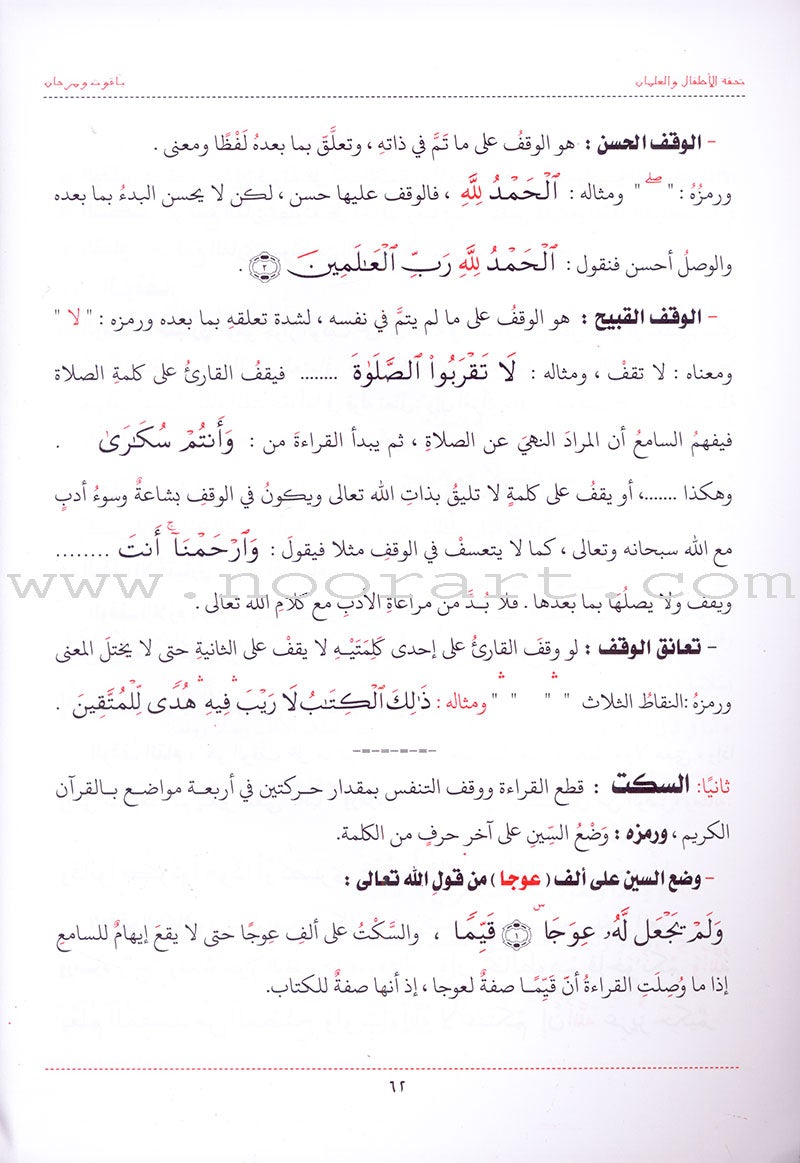 تحفة الأطفال والغلمان
ياقوت ومرجان
- الوقف الحسن : هو الوقفُ على ما تَمَّ في ذاتهِ ، وتعلَّقَ بما بعدهُ لَفْظًا ومعنى .
ورمزُهُ : " صلے " ومثاله : ٱلْحَمْدُ لِلَّهِ ، فالوقف عليها حسن ، لكن لا يحسن البدءُ بما بعده
والوصلُ أحسن فنقول : ٱلْحَمْدُ لِلَّهِ رَبِّ ٱلْعَٰلَمِينَ ٢ .
- الوقف القبيح : هو الوقفُ على ما لم يتمَّ في نفسه ، لشدة تعلقهِ بما بعده ورمزه : " لا "
ومعناه : لا تقفْ ، ومثاله : لَا تَقْرَبُوا۟ ٱلصَّلَوٰةَ ....... فيقفُ القارئُ على كلمةِ الصلاة
فيفهمُ السامعُ أن المرادَ النهيَ عن الصلاةِ ، ثم يبدأ القراءةَ من : وَأَنتُمْ سُكَٰرَىٰ .
وهكذا .......، أو يقفُ على كلمةٍ لا تليقُ بذاتِ الله تعالى ويكونُ في الوقفِ بشاعةٌ وسوءُ أدبٍ
مع الله سبحانه وتعالى ، كما لا يتعسفْ في الوقفِ مثلا فيقولَ : وَٱرْحَمْنَآ ۚ أَنتَ ........
www.noorart.com
ويقف ولا يصلُها بما بعدها . فلا بُـدَّ من مراعاةِ الأدبِ مع كلامِ الله تعالى .
- تعانق الوقف : لو وقفَ القارئُ على إحدى كَلِمَتَيْـهِ لا يقفْ على الثانيةِ حتى لا يختلَ المعنى
ورمزهُ :النقاطُ الثلاث " ۛ " " ۛ " ومثاله : ذَٰلِكَ ٱلْكِتَٰبُ لَا رَيْبَ ۛ فِيهِ ۛ هُدًى لِّلْمُتَّقِينَ .
-=-=-=-=-=-=-
ثانيًا: السكت : قطع القراءة ووقف التنفس بمقدار حـركتين في أربعـة مواضـع بـالقرآن
الكريم ، ورمزه : وَضْعُ السِّينِ على آخر حرفٍ من الكلمة.
- وضع السين على ألف ( عوجا ) من قولِ الله تعالى :
وَلَمْ يَجْعَل لَّهُۥ عِوَجَا ۜ ١ قَيِّمًا ، والسَّكْتُ على ألفِ عِوجًا حتى لا يقعَ إيهامٌ للسامعِ
إذا ما وُصِلَتِ القراءةُ أنّ قَيِّمًـا صفةٌ لعوجا ، إذ أنها صفةٌ للكتاب.
٦٢